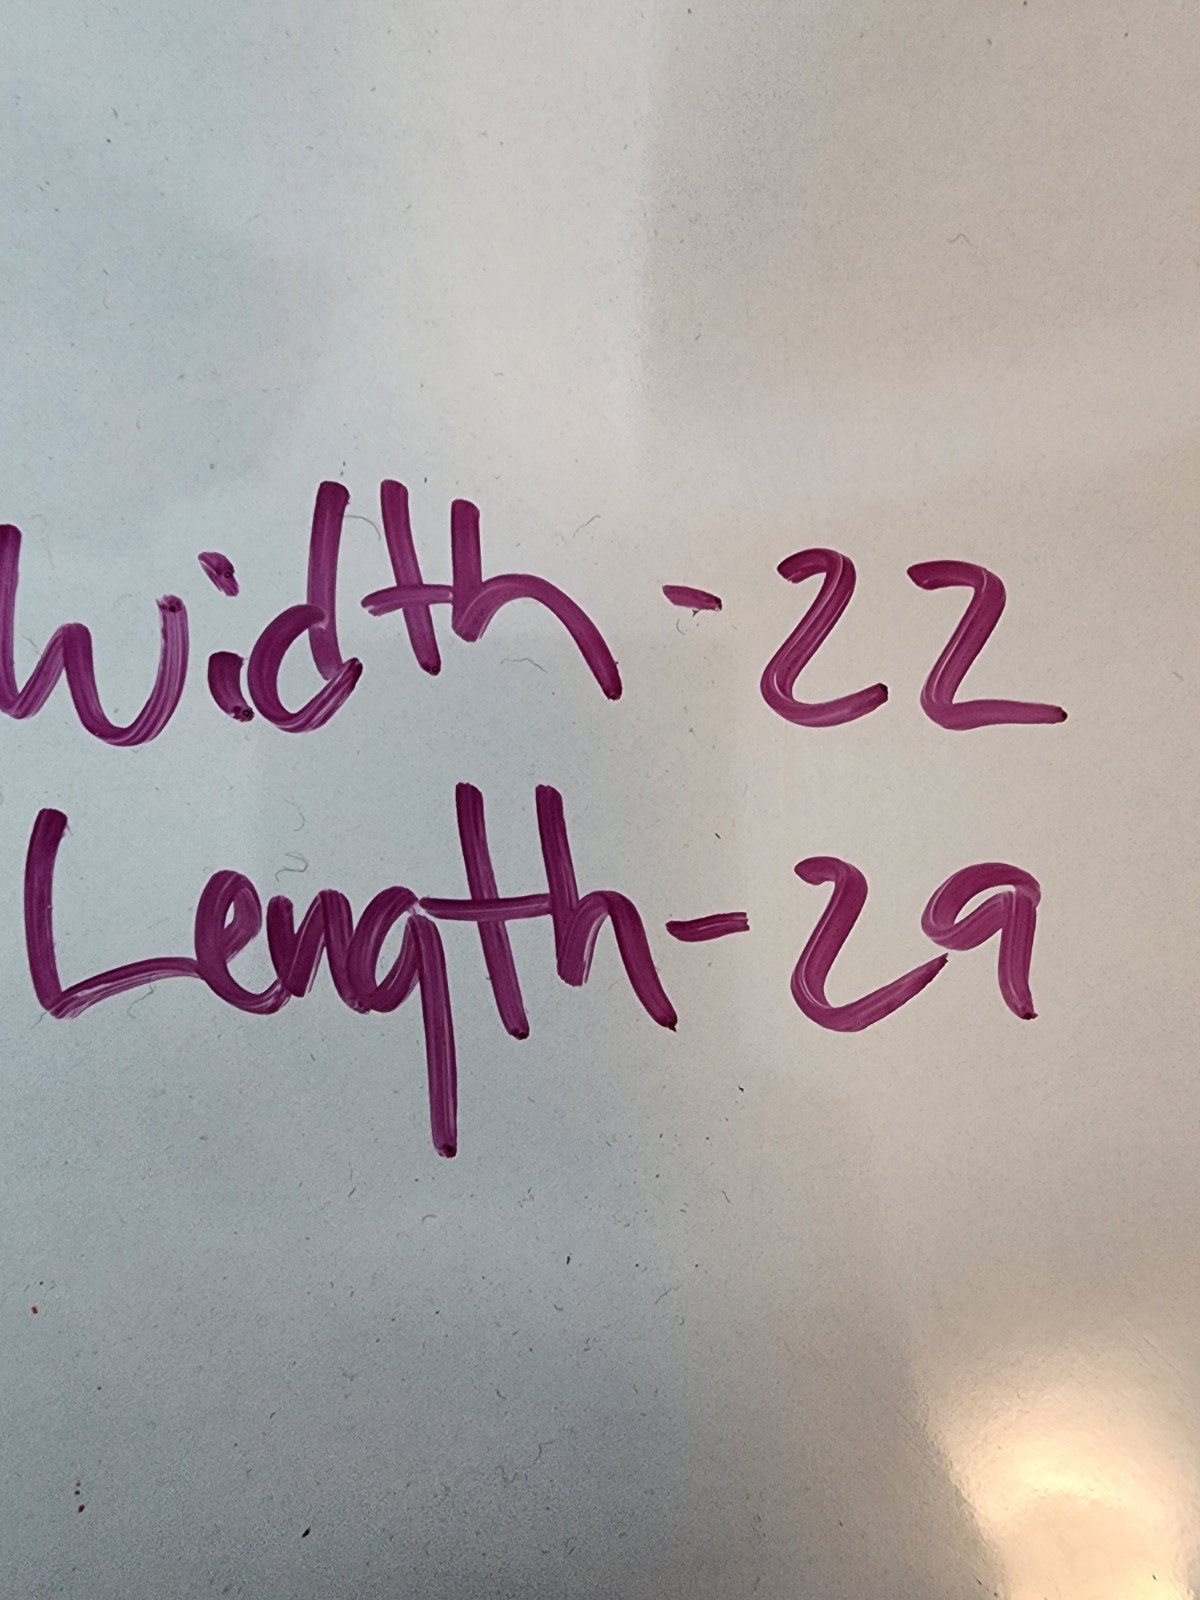 Width - 22
Length - 29